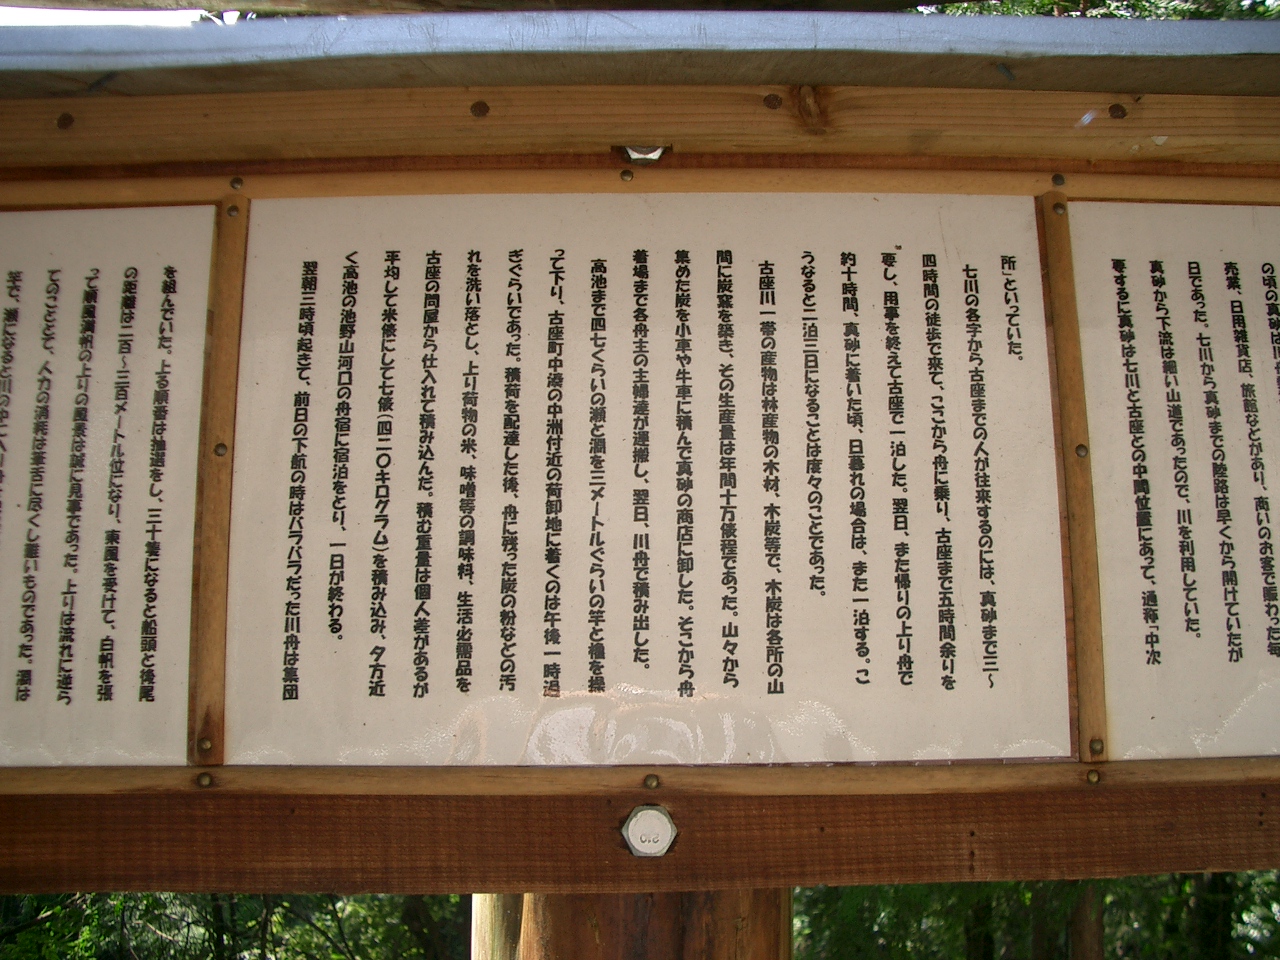 の頃の真砂は川舟
売業、日用雑貨店、旅館などがあり、商いのお客で賑わった毎
日であった。七川から真砂までの陸路は早くから開けていたが
真砂から下流は細い山道であったので、川を利用していた。
要するに真砂は七川と古座との中間位置にあって、通称「中次
所」といっていた。
七川の各字から古座までの人が往来するのには、真砂まで三~
四時間の徒歩で来て、ここから舟に乗り、古座まで五時間余りを
要し、用事を終えて古座で一泊した。翌日、また帰りの上り舟で
約十時間、真砂に着いた頃、日暮れの場合は、また一泊する。こ
うなると二泊三日になることは度々のことであった。
古座川一帯の産物は林産物の木材、木炭等で、木炭は各所の山
間に炭窯を築き、その生産量は年間十万俵程であった。山々から
集めた炭を小車や牛車に積んで真砂の商店に卸した。そこから舟
着場まで各舟主の主婦達が運搬し、翌日、川舟で積み出した。
高池まで四七くらいの瀬と澗を三メートルぐらいの竿と櫓を操
って下り、古座町中湊の中洲付近の荷卸地に着くのは午後一時過
ぎぐらいであった。積荷を配達した後、舟に残った炭の粉などの汚
れを洗い落とし、上り荷物の米、味噌等の調味料、生活必需品を
古座の問屋から仕入れて積み込んだ。積む重量は個人差があるが
平均して米俵にして七俵(四二〇キログラム)を積み込み、夕方近
く高池の池野山河口の舟宿に宿泊をとり、一日が終わる。
翌朝三時頃起きて、前日の下航の時はバラバラだった川舟は集団
を組んでいた。上る順番は抽選をし、三十隻になると船頭と後尾
の距離は二百~三百メートル位になり、東風を受けて、白帆を張
って順風満帆の上りの風景は誠に見事であった。上りは流れに逆ら
てのこととて、人力の消耗は筆舌に尽くし難いものであった。瀬は
竿で、瀬になると川の中に入り